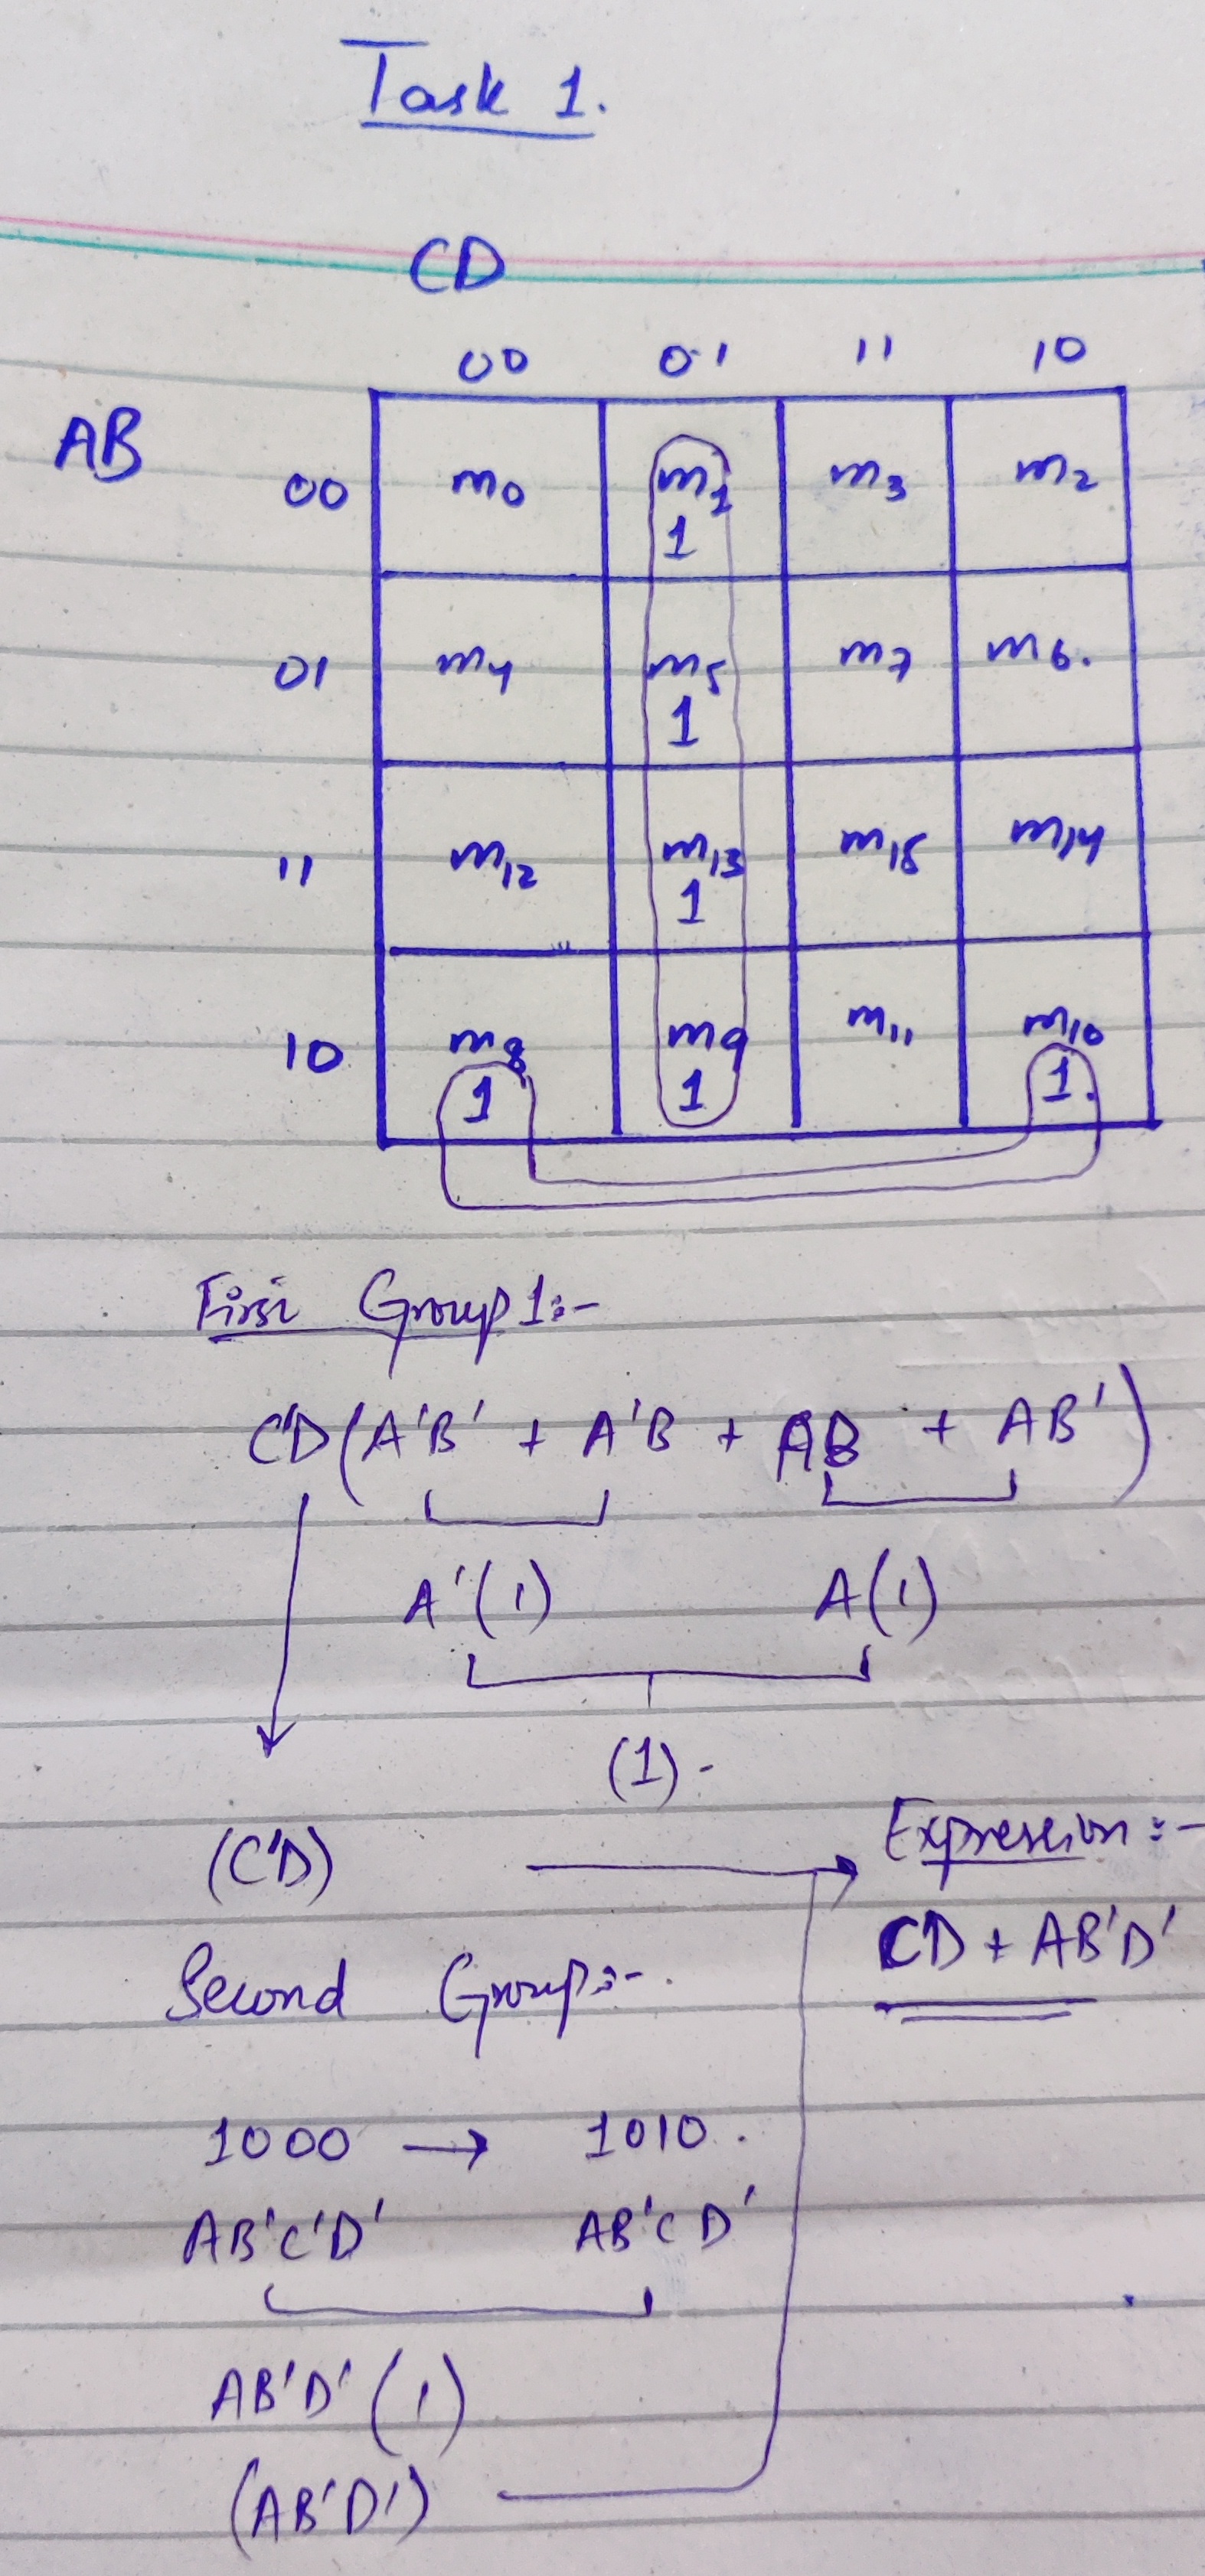 Task 1.
CD
00 01 11 10
AB
00 m0 m1 m3 m2
1
01 m4 m5 m7 m6.
1
11 m12 m13 m15 m14
1
10 m8 m9 m11 m10
1 1 1.
First Group 1:-
C'D(A'B' + A'B + AB + AB')
A'(1) A(1)
(1).
(C'D)
Expression:-
CD + AB'D'
Second Group:-.
1000 → 1010.
AB'C'D' AB'CD'
AB'D'(1)
(AB'D')